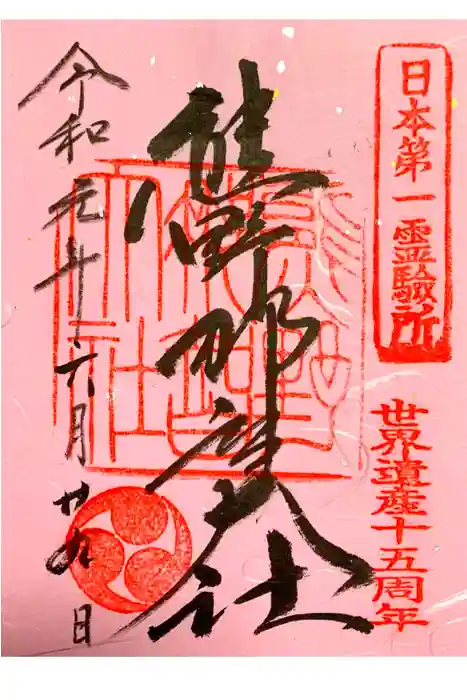 日本第一霊験所
世界遺産十五周年
熊野那智大社
令和元年六月廿九日